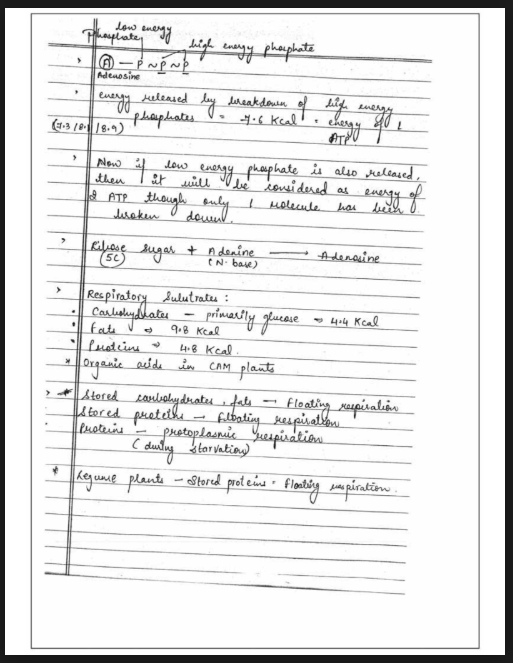 low energy
phosphate
high energy phosphate
(A) — P ~ P ~ P
Adenosine
energy released by breakdown of high energy
phosphates = -7.6 Kcal = energy of 1
ATP
(7.3 / 8.1 / 8.9)
Now if low energy phosphate is also released,
then it will be considered as energy of
2 ATP though only 1 molecule has been
broken down.
Ribose sugar + Adenine ⟶ Adenosine
(5C) (N-base)
Respiratory Substrates :
Carbohydrates — primarily glucose ⇒ 4.4 Kcal
Fats ⇒ 9.8 Kcal
Proteins ⇒ 4.8 Kcal.
* Organic acids in CAM plants
* Stored carbohydrates, fats — Floating respiration
Stored proteins — Floating respiration
Proteins — protoplasmic respiration
(during starvation)
* Legume plants — Stored proteins = Floating respiration.